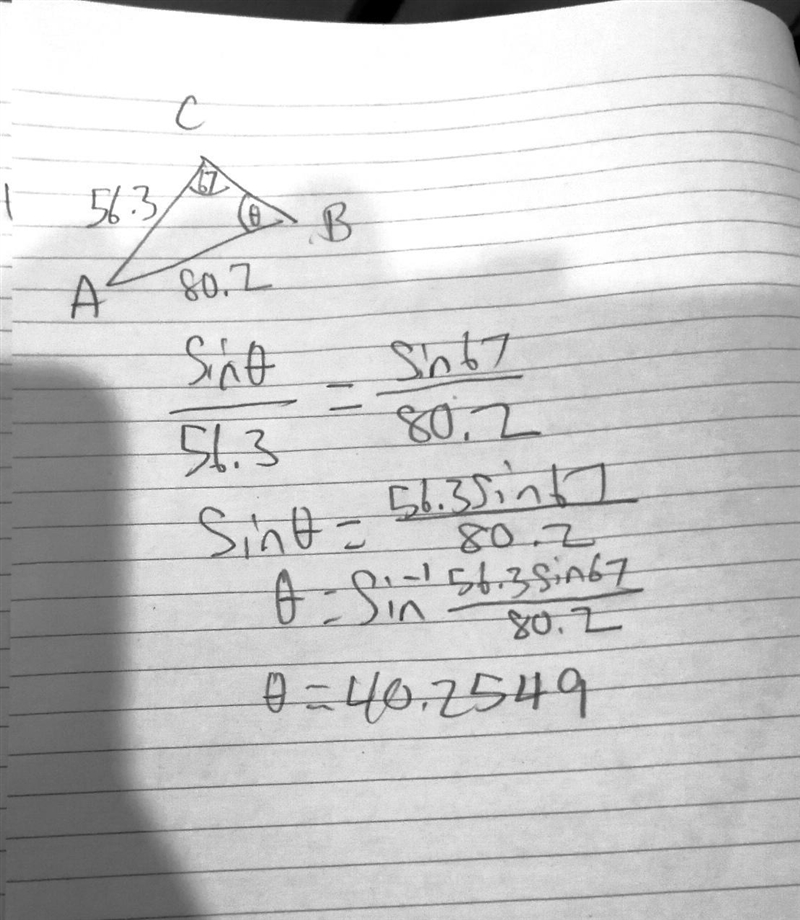 C
67
56.3
θ
B
A
80.2
Sinθ/56.3 = Sin67/80.2
Sinθ = 56.3Sin67/80.2
θ = Sin⁻¹ 56.3Sin67/80.2
θ = 40.2549